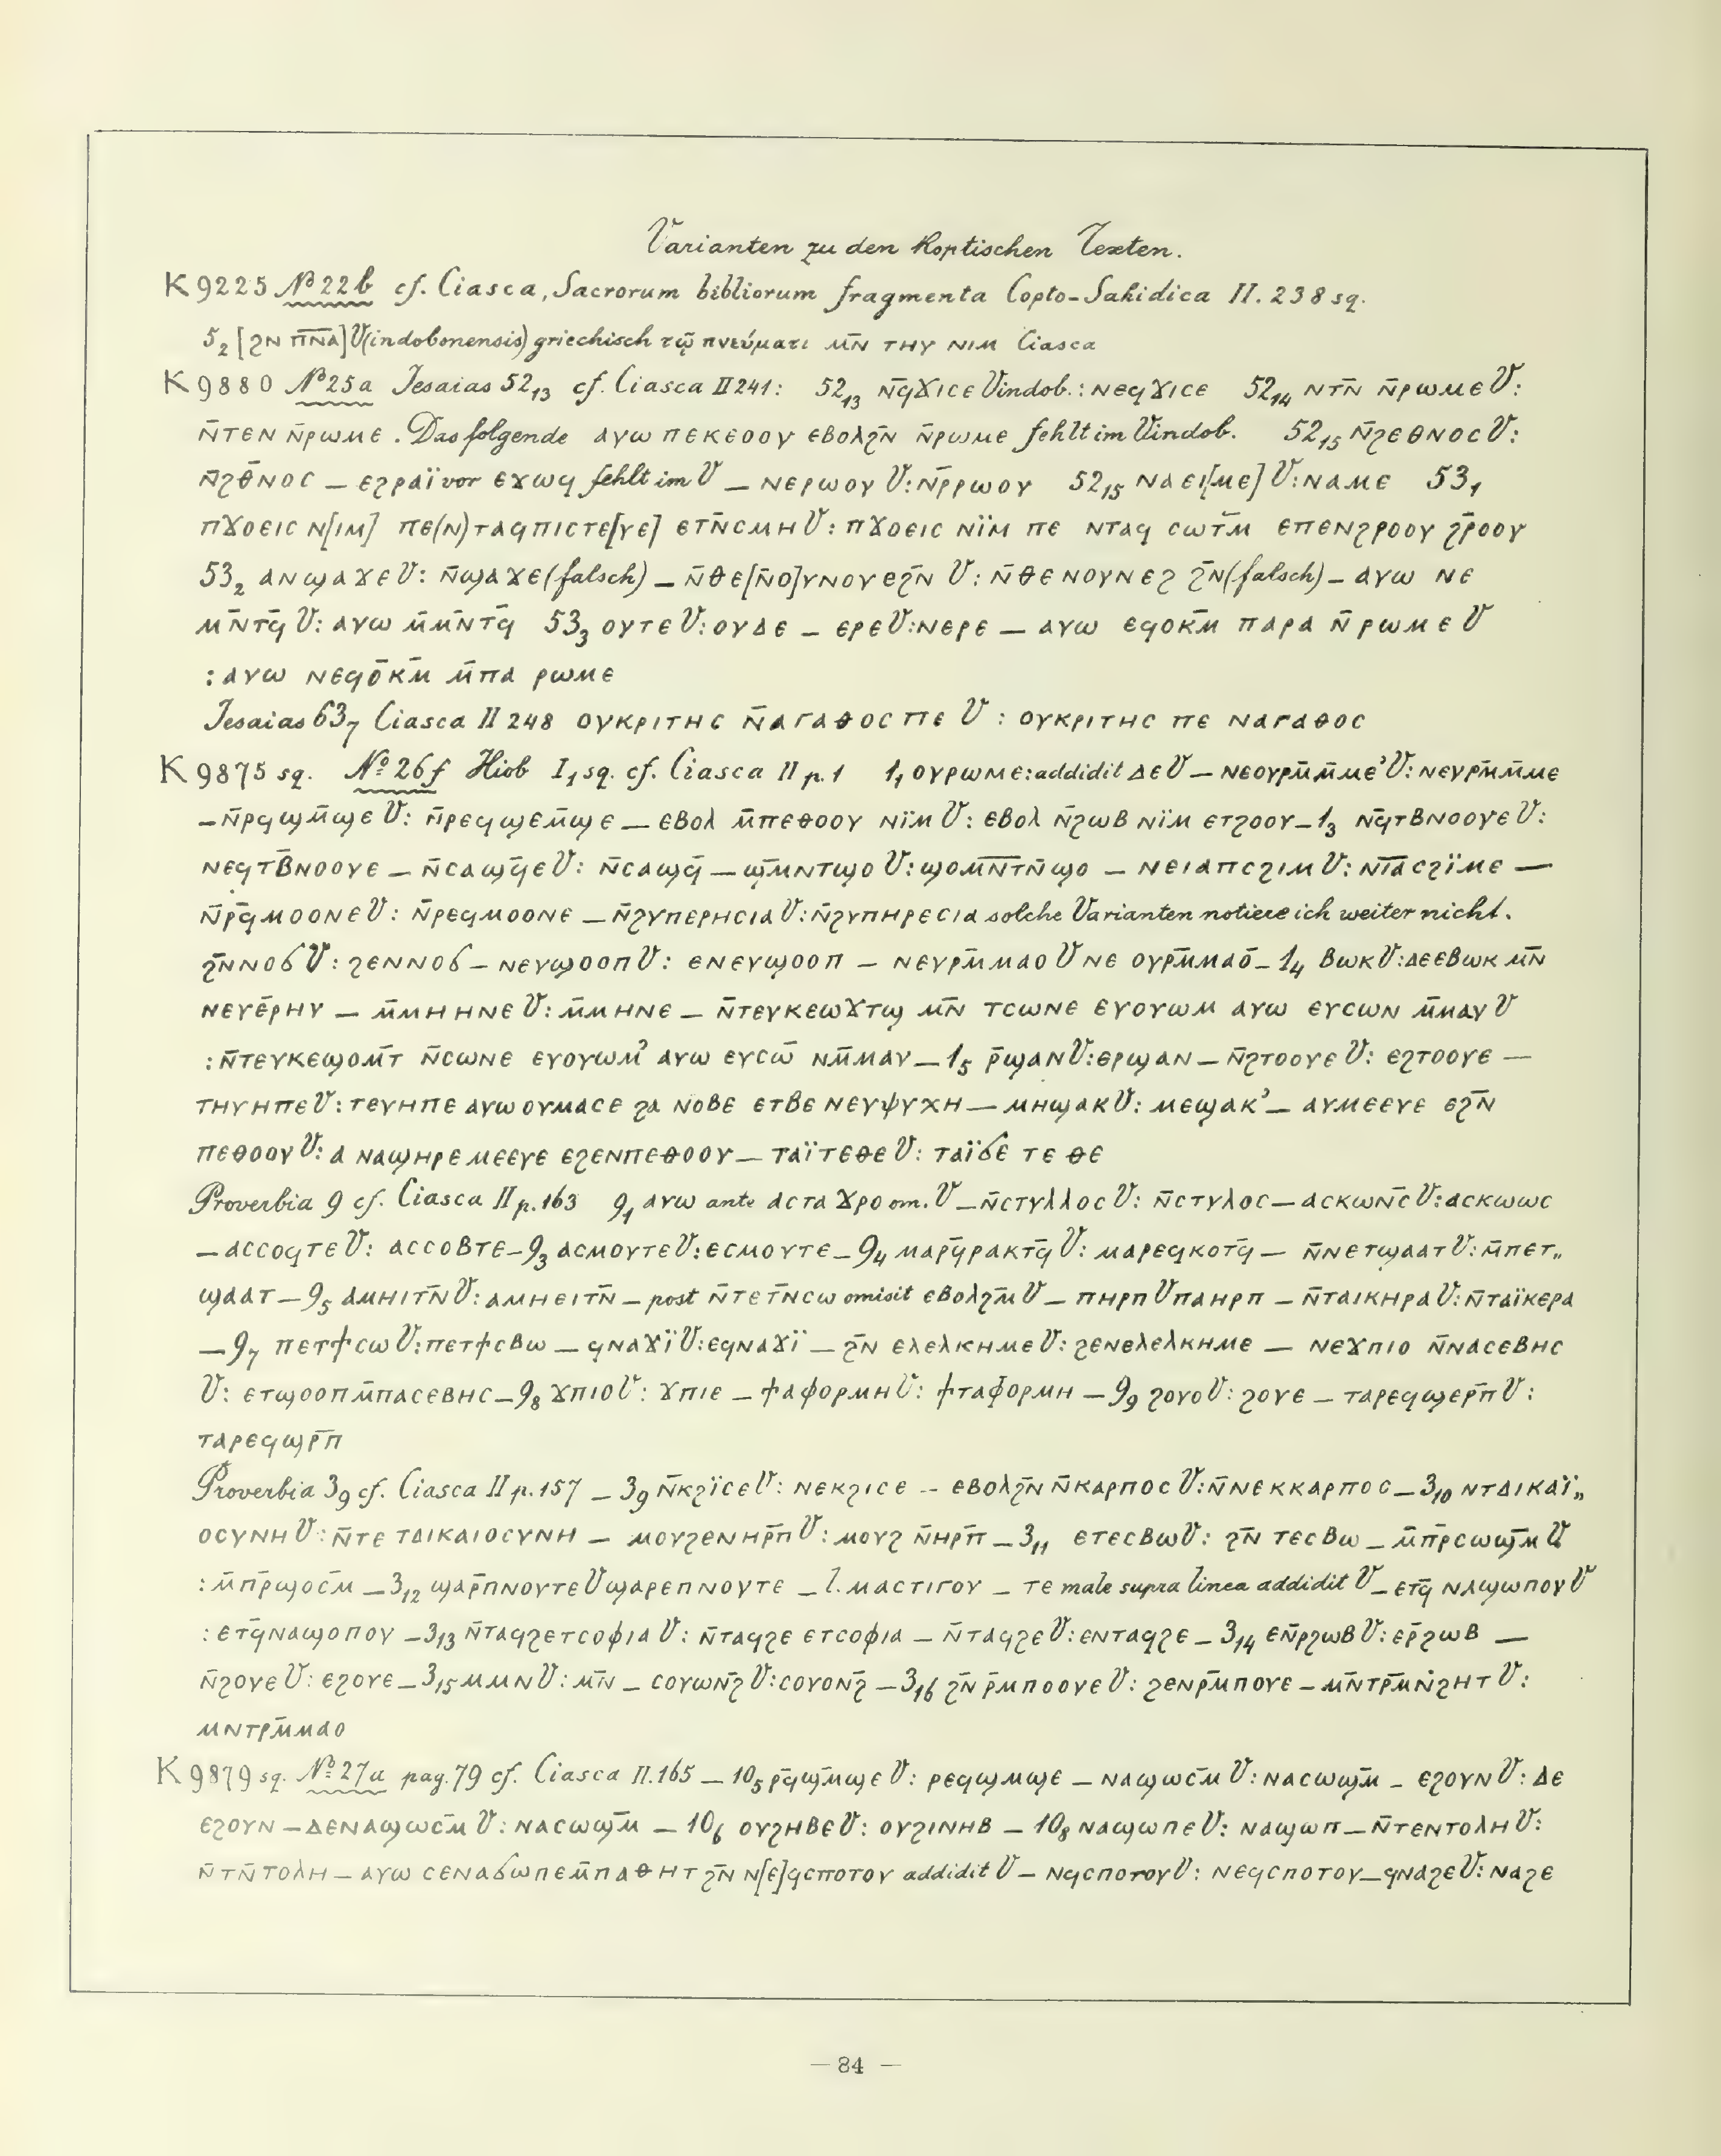 Varianten zu den Koptischen Texten.
K 9225 № 22b cf. Ciasca, Sacrorum bibliorum fragmenta Copto-Sahidica II. 238 sq.
5₂ [ϩⲛ ⲡ̅ⲛ̅ⲁ̅] V(indobonensis) griechisch τῷ πνεύματι ⲙⲛ̄ ⲧⲏⲩ ⲛⲓⲙ Ciasca
K 9880 № 25a Jesaias 52₁₃ cf. Ciasca II 241: 52₁₃ ⲛϥ̄ϫⲓⲥⲉ Vindob.: ⲛⲉϥϫⲓⲥⲉ 52₁₄ ⲛⲧⲛ̄ ⲛ̄ⲣⲱⲙⲉ V:
ⲛ̄ⲧⲉⲛ ⲛ̄ⲣⲱⲙⲉ. Das folgende ⲁⲩⲱ ⲡⲉⲕⲉⲟⲟⲩ ⲉⲃⲟⲗϩⲛ̄ ⲛ̄ⲣⲱⲙⲉ fehlt im Vindob. 52₁₅ ⲛ̄ϩⲉⲑⲛⲟⲥ V:
ⲛ̄ϩⲑ̄ⲛⲟⲥ – ⲉϩⲣⲁϊ vor ⲉϫⲱϥ fehlt im V – ⲛⲉⲣⲱⲟⲩ V: ⲛ̄ⲣ̄ⲣⲱⲟⲩ 52₁₅ ⲛⲁⲉⲓ[ⲙⲉ] V: ⲛⲁⲙⲉ 53₁
ⲡϫⲟⲉⲓⲥ ⲛ[ⲓⲙ] ⲡⲉ(ⲛ)ⲧⲁϥⲡⲓⲥⲧⲉ[ⲩⲉ] ⲉⲧⲛ̄ⲥⲙⲏ V: ⲡϫⲟⲉⲓⲥ ⲛϊⲙ ⲡⲉ ⲛⲧⲁϥ ⲥⲱⲧⲙ̄ ⲉⲡⲉⲛϩⲣⲟⲟⲩ ϩⲣ̄ⲟⲟⲩ
53₂ ⲁⲛϣⲁϫⲉ V: ⲛ̄ϣⲁϫⲉ (falsch) – ⲛ̄ⲑⲉ[ⲛ̄ⲟ]ⲩⲛⲟⲩⲉϩⲛ̄ V: ⲛ̄ⲑⲉ ⲛⲟⲩⲛⲉϩ ϩⲛ̄ (falsch) – ⲁⲩⲱ ⲛⲉ
ⲙⲛ̄ⲧϥ̄ V: ⲁⲩⲱ ⲙ̄ⲙⲛ̄ⲧϥ̄ 53₃ ⲟⲩⲧⲉ V: ⲟⲩⲇⲉ – ⲉⲣⲉ V: ⲛⲉⲣⲉ – ⲁⲩⲱ ⲉϥⲟⲕⲙ̄ ⲡⲁⲣⲁ ⲛ̄ ⲣⲱⲙⲉ V
: ⲁⲩⲱ ⲛⲉϥⲟ̄ⲕⲙ̄ ⲙ̄ⲡⲁ ⲣⲱⲙⲉ
Jesaias 63₇ Ciasca II 248 ⲟⲩⲕⲣⲓⲧⲏⲥ ⲛ̄ⲁⲅⲁⲑⲟⲥ ⲡⲉ V : ⲟⲩⲕⲣⲓⲧⲏⲥ ⲡⲉ ⲛⲁⲅⲁⲑⲟⲥ
K 9875 sq. № 26f Hiob I₁ sq. cf. Ciasca II p. 1 1₁ ⲟⲩⲣⲱⲙⲉ: addidit ⲇⲉ V – ⲛⲉⲟⲩⲣⲙ̄ⲙ̄ⲙⲉ’ V: ⲛⲉⲩⲣⲙ̄ⲙ̄ⲙⲉ
– ⲛ̄ⲣϥϣⲙ̄ϣⲉ V: ⲛ̄ⲣⲉϥϣⲉⲙ̄ϣⲉ – ⲉⲃⲟⲗ ⲙ̄ⲡⲉⲑⲟⲟⲩ ⲛϊⲙ V: ⲉⲃⲟⲗ ⲛ̄ϩⲱⲃ ⲛϊⲙ ⲉⲧϩⲟⲟⲩ – 1₃ ⲛϥ̄ⲧⲃⲛⲟⲟⲩⲉ V:
ⲛⲉϥⲧⲃ̄ⲛⲟⲟⲩⲉ – ⲛ̄ⲥⲁϣϥ̄ⲉ V: ⲛ̄ⲥⲁϣϥ̄ – ϣⲙ̄ⲛⲧϣⲟ V: ϣⲟⲙ̅ⲛ̅ⲧⲛ̄ϣⲟ – ⲛⲉⲓⲁⲡⲥϩⲓⲙ V: ⲛⲧ̅ⲁ̅ⲥϩϊⲙⲉ —
ⲛ̄ⲣϥ̄ⲙⲟⲟⲛⲉ V: ⲛ̄ⲣⲉϥⲙⲟⲟⲛⲉ – ⲛ̄ϩⲩⲡⲉⲣⲏⲥⲓⲁ V: ⲛ̄ϩⲩⲡⲏⲣⲉⲥⲓⲁ solche Varianten notiere ich weiter nicht.
ϩⲛ̄ⲛⲟϭ V: ϩⲉⲛⲛⲟϭ – ⲛⲉⲩϣⲟⲟⲡ V: ⲉⲛⲉⲩϣⲟⲟⲡ – ⲛⲉⲩⲣⲙ̄ⲙⲁⲟ V ⲛⲉ ⲟⲩⲣⲙ̄ⲙⲁⲟ̄ – 1₄ ⲃⲱⲕ V: ⲇⲉⲉⲃⲱⲕ ⲙⲛ̄
ⲛⲉⲩⲉ̄ⲣⲏⲩ – ⲙ̄ⲙⲏⲏⲛⲉ V: ⲙ̄ⲙⲏⲛⲉ – ⲛ̄ⲧⲉⲩⲕⲉⲱϫⲧϣ ⲙⲛ̄ ⲧⲥⲱⲛⲉ ⲉⲩⲟⲩⲱⲙ ⲁⲩⲱ ⲉⲩⲥⲱⲛ ⲙ̄ⲙⲁⲩ V
: ⲛ̄ⲧⲉⲩⲕⲉϣⲟⲙ̄ⲧ ⲛ̄ⲥⲱⲛⲉ ⲉⲩⲟⲩⲱⲙ’ ⲁⲩⲱ ⲉⲩⲥⲱ̄ ⲛⲙ̄ⲙⲁⲩ – 1₅ ⲣ̄ϣⲁⲛ V: ⲉⲣϣⲁⲛ – ⲛ̄ϩⲧⲟⲟⲩⲉ V: ⲉϩⲧⲟⲟⲩⲉ —
ⲧⲏⲩⲏⲡⲉ V: ⲧⲉⲩⲏⲡⲉ ⲁⲩⲱ ⲟⲩⲙⲁⲥⲉ ϩⲁ ⲛⲟⲃⲉ ⲉⲧⲃⲉ ⲛⲉⲩⲯⲩⲭⲏ – ⲙⲏϣⲁⲕ V: ⲙⲉϣⲁⲕ’ – ⲁⲩⲙⲉⲉⲩⲉ ⲉϩⲛ̄
ⲡⲉⲑⲟⲟⲩ V: ⲁ ⲛⲁϣⲏⲣⲉ ⲙⲉⲉⲩⲉ ⲉϩⲉⲛⲡⲉⲑⲟⲟⲩ – ⲧⲁϊⲧⲉⲑⲉ V: ⲧⲁϊϭⲉ ⲧⲉ ⲑⲉ
Proverbia 9 cf. Ciasca II p. 163 9₁ ⲁⲩⲱ ante ⲁⲥⲧⲁϫⲣⲟ om. V – ⲛ̄ⲥⲧⲩⲗⲗⲟⲥ V: ⲛ̄ⲥⲧⲩⲗⲟⲥ – ⲁⲥⲕⲱⲛ̄ⲥ V: ⲁⲥⲕⲱⲱⲥ
– ⲁⲥⲥⲟϥⲧⲉ V: ⲁⲥⲥⲟⲃⲧⲉ – 9₃ ⲁⲥⲙⲟⲩⲧⲉ V: ⲉⲥⲙⲟⲩⲧⲉ – 9₄ ⲙⲁⲣϥ̄ⲣⲁⲕⲧϥ̄ V: ⲙⲁⲣⲉϥⲕⲟⲧϥ̄ – ⲛ̄ⲛⲉⲧϣⲁⲁⲧ V: ⲙ̄ⲡⲉⲧ„
ϣⲁⲁⲧ – 9₅ ⲁⲙⲏⲓⲧⲛ̄ V: ⲁⲙⲏⲉⲓⲧⲛ̄ – post ⲛ̄ⲧⲉⲧⲛ̄ⲥⲱ omisit ⲉⲃⲟⲗϩⲙ̄ V – ⲡⲏⲣⲡ V ⲡⲁⲏⲣⲡ – ⲛ̄ⲧⲁⲓⲕⲏⲣⲁ V: ⲛ̄ⲧⲁϊⲕⲉⲣⲁ
– 9₇ ⲡⲉⲧϯⲥⲱ V: ⲡⲉⲧϯⲥⲃⲱ – ϥⲛⲁϫϊ V: ⲉϥⲛⲁϫϊ – ϩⲛ̄ ⲉⲗⲉⲗⲕⲏⲙⲉ V: ϩⲉⲛⲉⲗⲉⲗⲕⲏⲙⲉ – ⲛⲉϫⲡⲓⲟ ⲛ̄ⲛⲁⲥⲉⲃⲏⲥ
V: ⲉⲧϣⲟⲟⲡⲙ̄ⲡⲁⲥⲉⲃⲏⲥ – 9₈ ϫⲡⲓⲟ V: ϫⲡⲓⲉ – ϯⲁⲫⲟⲣⲙⲏ V: ϯⲧⲁⲫⲟⲣⲙⲏ – 9₉ ϩⲟⲩⲟ V: ϩⲟⲩⲉ – ⲧⲁⲣⲉϥϣⲉⲣ̄ⲡ V:
ⲧⲁⲣⲉϥϣⲣ̄ⲡ
Proverbia 3₉ cf. Ciasca II p. 157 – 3₉ ⲛ̄ⲕϩϊⲥⲉ V: ⲛⲉⲕϩⲓⲥⲉ – ⲉⲃⲟⲗϩⲛ̄ ⲛ̄ⲕⲁⲣⲡⲟⲥ V: ⲛ̄ⲛⲉⲕⲕⲁⲣⲡⲟⲥ – 3₁₀ ⲛⲧⲇⲓⲕⲁϊ„
ⲟⲥⲩⲛⲏ V: ⲛ̄ⲧⲉ ⲧⲇⲓⲕⲁⲓⲟⲥⲩⲛⲏ – ⲙⲟⲩϩⲉⲛⲏⲣ̄ⲡ V: ⲙⲟⲩϩ ⲛ̄ⲏⲣ̄ⲡ – 3₁₁ ⲉⲧⲉⲥⲃⲱ V: ϩⲛ̄ ⲧⲉⲥⲃⲱ – ⲙ̄ⲡⲣ̄ⲥⲱϣ̄ⲙ V
: ⲙ̄ⲡⲣ̄ϣⲟⲥ̄ⲙ – 3₁₂ ϣⲁⲣ̄ⲡⲛⲟⲩⲧⲉ V ϣⲁⲣⲉⲡⲛⲟⲩⲧⲉ – l. ⲙⲁⲥⲧⲓⲅⲟⲩ – ⲧⲉ male supra linea addidit V – ⲉⲧϥ̄ ⲛⲁϣⲱⲡⲟⲩ V
: ⲉⲧϥ̄ⲛⲁϣⲟⲡⲟⲩ – 3₁₃ ⲛ̄ⲧⲁϥϩⲉⲧⲥⲟⲫⲓⲁ V: ⲛ̄ⲧⲁϥϩⲉ ⲉⲧⲥⲟⲫⲓⲁ – ⲛ̄ⲧⲁϥϩⲉ V: ⲉⲛⲧⲁϥϩⲉ – 3₁₄ ⲉⲛ̄ⲣϩⲱⲃ V: ⲉⲣ̄ϩⲱⲃ —
ⲛ̄ϩⲟⲩⲉ V: ⲉϩⲟⲩⲉ – 3₁₅ ⲙⲙⲛ V: ⲙⲛ̄ – ⲥⲟⲩⲱⲛ̄ϩ V: ⲥⲟⲩⲟⲛ̄ϩ – 3₁₆ ϩⲛ̄ ⲣ̄ⲙⲡⲟⲟⲩⲉ V: ϩⲉⲛⲣⲙ̄ⲡⲟⲩⲉ – ⲙⲛ̄ⲧⲣⲙ̄ⲛ̄ϩⲏⲧ V:
ⲙⲛⲧⲣⲙ̄ⲙⲁⲟ
K 9879 sq. № 27a pag. 79 cf. Ciasca II. 165 – 10₅ ⲣϥ̄ϣⲙ̄ϣⲉ V: ⲣⲉϥϣⲙϣⲉ – ⲛⲁϣⲱⲥ̄ⲙ V: ⲛⲁⲥⲱϣⲙ̄ – ⲉϩⲟⲩⲛ V: ⲇⲉ
ⲉϩⲟⲩⲛ – ⲇⲉⲛⲁϣⲱⲥ̄ⲙ V: ⲛⲁⲥⲱϣⲙ̄ – 10₆ ⲟⲩϩⲏⲃⲉ V: ⲟⲩϩⲓⲛⲏⲃ – 10₈ ⲛⲁϣⲱⲡⲉ V: ⲛⲁϣⲱⲡ – ⲛ̄ⲧⲉⲛⲧⲟⲗⲏ V:
ⲛ̄ⲧⲛ̄ⲧⲟⲗⲏ – ⲁⲩⲱ ⲥⲉⲛⲁϭⲱⲡⲉⲙ̄ⲡⲁⲑⲏⲧ ϩⲛ̄ ⲛ[ⲉ]ϥⲥⲡⲟⲧⲟⲩ addidit V – ⲛϥⲥⲡⲟⲧⲟⲩ V: ⲛⲉϥⲥⲡⲟⲧⲟⲩ – ϥⲛⲁϩⲉ V: ⲛⲁϩⲉ
– 84 –